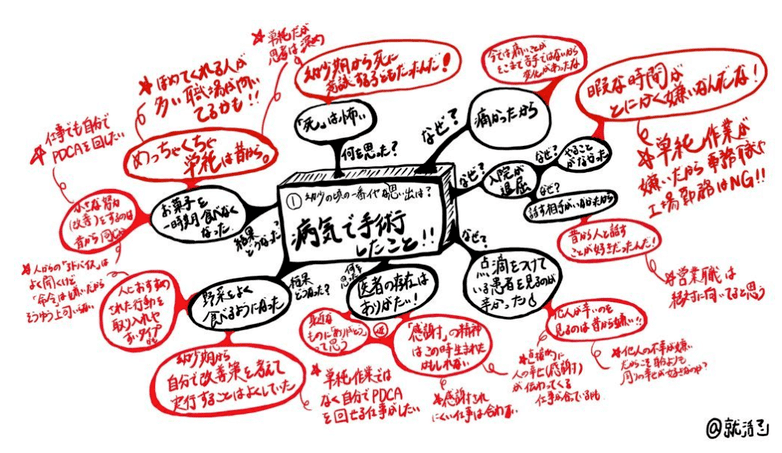 ① 幼少の頃の一番イヤな思い出は？
病気で手術
したこと!!
何を思った？
「死」は怖い
幼少期から死に
なぜ？
痛かったから
なぜ？
入院が
退屈
なぜ？
やること
がなかった
暇な時間が
とにかく嫌いなんだな!
☆単純作業が
嫌いだから
工場勤務はNG!!
なぜ？
話す相手がいなかったから
昔から人と話す
ことが好きだったんだ!
☆営業職は
絶対に向いてると思う
なぜ？
点滴をつけて
いる患者を見るのが
辛かった
他人が辛いのを
見るのは昔から嫌い!!
☆他人の不幸が嫌い
何を
医者の存在は
ありがたい!
「感謝」の精神
はこの時生まれた
かもしれない
☆感謝され
にくい仕事は合わない
人の幸せ(感謝)
が伝わってくる
ものに「ありがとう」
って思う
結果
どうなった？
野菜をよく
食べるようになった
人におすすめ
された行動を
取り入れや
すいタイプ
☆人からの「アドバイス」は
よく聞くけど
幼少期から
自分で改善策を考えて
実行することはよくしていた
☆単純作業では
なく自分でPDCA
を回せる仕事がしたい
結果
どうなった？
お菓子を
一時期食べなく
なった
小さな努力
(改善)をするのは
昔から同じ
☆仕事でも自分で
PDCAを回したい
めっちゃくちゃ
単純は昔から。
☆ほめてくれる人が
多い職場が向い
てるかも!!
☆単純だが
思考は深め
@就活記